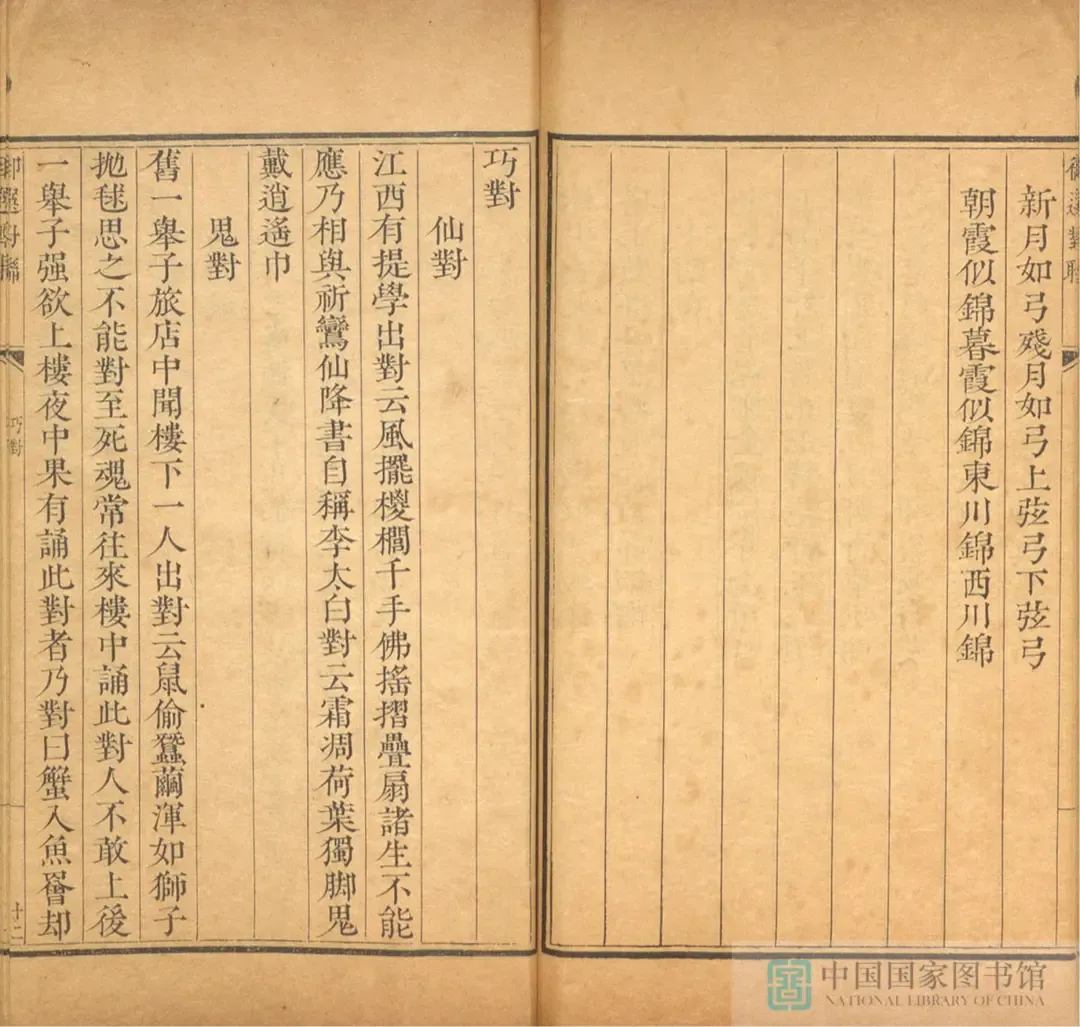 新月如弓殘月如弓上弦弓下弦弓
朝霞似錦暮霞似錦東川錦西川錦
巧對
仙對
江西有提學出對云風擺椶櫚千手佛搖摺疊扇諸生不能
應乃相與祈鸞仙降書自稱李太白對云霜凋荷葉獨脚鬼
戴逍遙巾
鬼對
舊一舉子旅店中聞樓下一人出對云鼠偷蠶繭渾如獅子
拋毬思之不能對至死魂常往來樓中誦此對人不敢上後
一舉子强欲上樓夜中果有誦此對者乃對曰蟹入魚罾却
巧對
十二
中国国家图书馆
NATIONAL LIBRARY OF CHINA